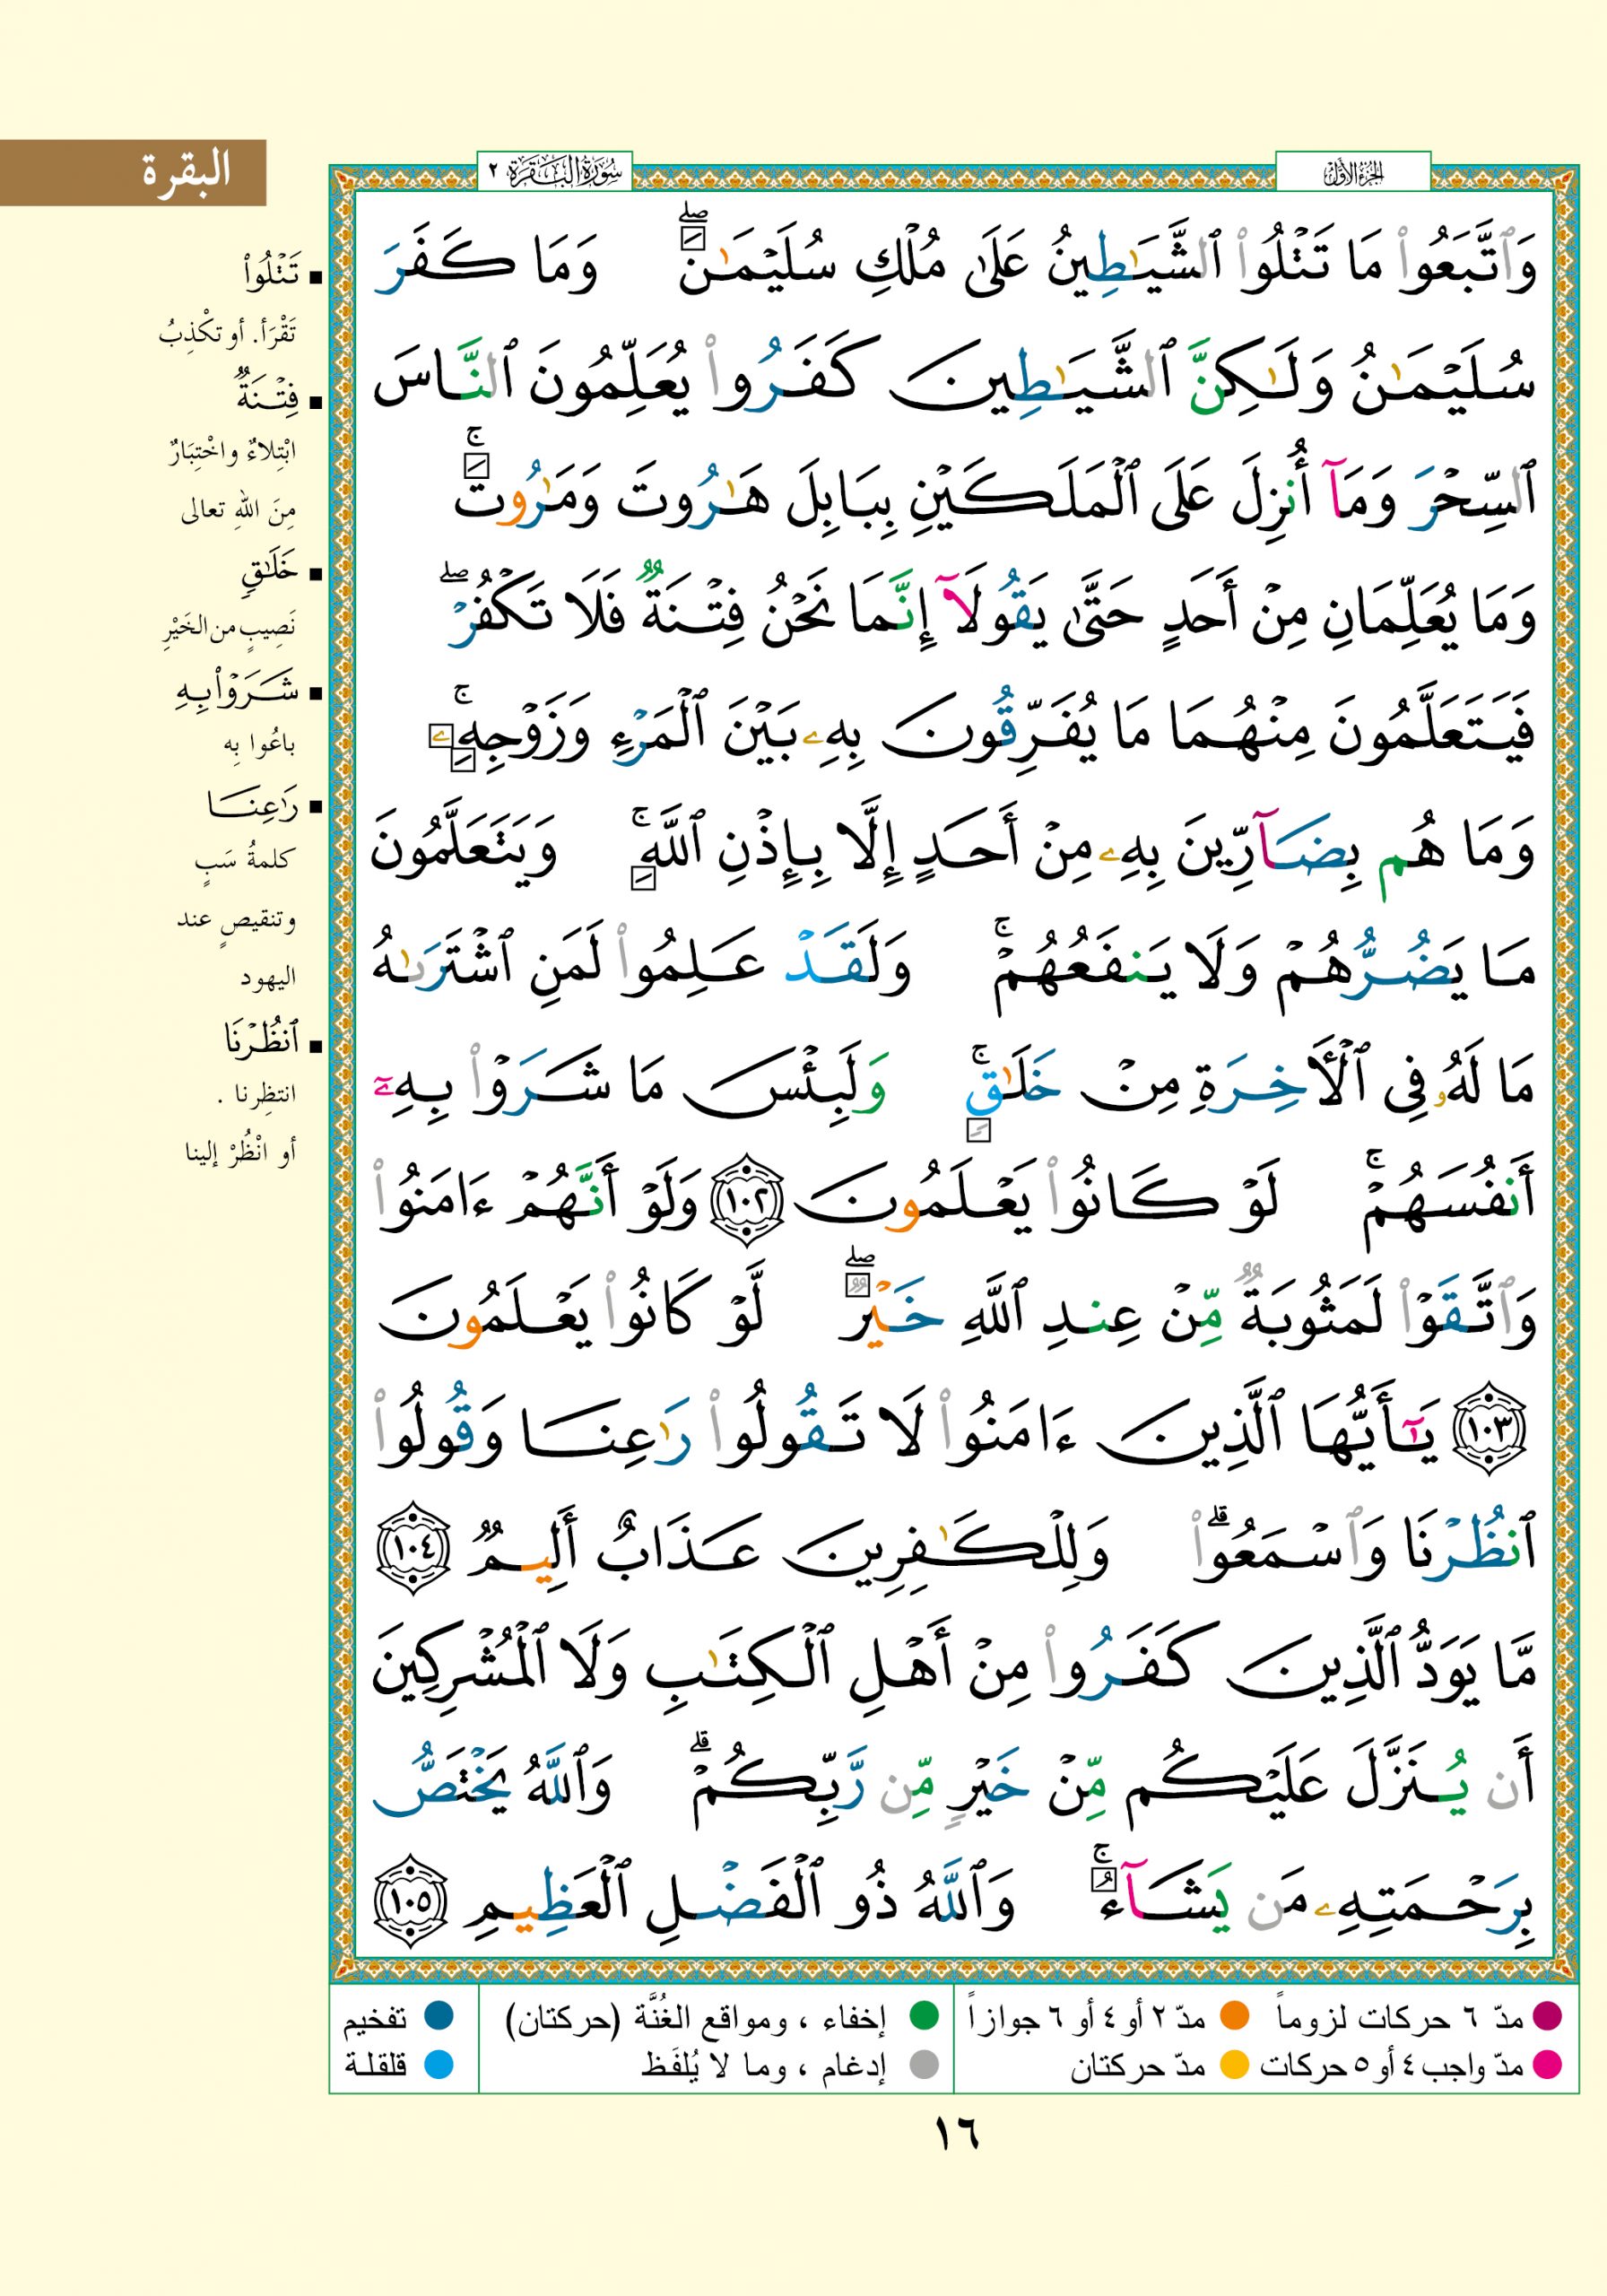 الجزء الأول
سورة البقرة ٢
البقرة
وَٱتَّبَعُوا۟ مَا تَتْلُوا۟ ٱلشَّيَـٰطِينُ عَلَىٰ مُلْكِ سُلَيْمَـٰنَ ۖ وَمَا كَفَرَ
سُلَيْمَـٰنُ وَلَـٰكِنَّ ٱلشَّيَـٰطِينَ كَفَرُوا۟ يُعَلِّمُونَ ٱلنَّاسَ
ٱلسِّحْرَ وَمَآ أُنزِلَ عَلَى ٱلْمَلَكَيْنِ بِبَابِلَ هَـٰرُوتَ وَمَـٰرُوتَ ۚ
وَمَا يُعَلِّمَانِ مِنْ أَحَدٍ حَتَّىٰ يَقُولَآ إِنَّمَا نَحْنُ فِتْنَةٌ فَلَا تَكْفُرْ ۖ
فَيَتَعَلَّمُونَ مِنْهُمَا مَا يُفَرِّقُونَ بِهِۦ بَيْنَ ٱلْمَرْءِ وَزَوْجِهِۦ ۚ
وَمَا هُم بِضَآرِّينَ بِهِۦ مِنْ أَحَدٍ إِلَّا بِإِذْنِ ٱللَّهِ ۚ وَيَتَعَلَّمُونَ
مَا يَضُرُّهُمْ وَلَا يَنفَعُهُمْ ۚ وَلَقَدْ عَلِمُوا۟ لَمَنِ ٱشْتَرَىٰهُ
مَا لَهُۥ فِى ٱلْـَٔاخِرَةِ مِنْ خَلَـٰقٍ ۚ وَلَبِئْسَ مَا شَرَوْا۟ بِهِۦٓ
أَنفُسَهُمْ ۚ لَوْ كَانُوا۟ يَعْلَمُونَ ١٠٢ وَلَوْ أَنَّهُمْ ءَامَنُوا۟
وَٱتَّقَوْا۟ لَمَثُوبَةٌ مِّنْ عِندِ ٱللَّهِ خَيْرٌ ۖ لَّوْ كَانُوا۟ يَعْلَمُونَ
١٠٣ يَـٰٓأَيُّهَا ٱلَّذِينَ ءَامَنُوا۟ لَا تَقُولُوا۟ رَٰعِنَا وَقُولُوا۟
ٱنظُرْنَا وَٱسْمَعُوا۟ ۗ وَلِلْكَـٰفِرِينَ عَذَابٌ أَلِيمٌ ١٠٤
مَّا يَوَدُّ ٱلَّذِينَ كَفَرُوا۟ مِنْ أَهْلِ ٱلْكِتَـٰبِ وَلَا ٱلْمُشْرِكِينَ
أَن يُنَزَّلَ عَلَيْكُم مِّنْ خَيْرٍ مِّن رَّبِّكُمْ ۗ وَٱللَّهُ يَخْتَصُّ
بِرَحْمَتِهِۦ مَن يَشَآءُ ۚ وَٱللَّهُ ذُو ٱلْفَضْلِ ٱلْعَظِيمِ ١٠٥
تَتْلُوا۟
تَقْرَأ. أو تكْذِبُ
فِتْنَةٌ
ابْتِلاءٌ واخْتِبَارٌ
مِنَ اللهِ تعالى
خَلَـٰقٍ
نَصِيبٍ من الخَيْرِ
شَرَوْا۟ بِهِ
باعُوا بِه
رَٰعِنَا
كلمةُ سَبٍ
وتنقيصٍ عند
اليهود
ٱنظُرْنَا
انتظِرنا .
أو انْظُرْ إلينا
مدّ ٦ حركات لزوماً مدّ ٢ أو ٤ أو ٦ جوازاً إخفاء ، ومواقع الغُنَّة (حركتان) تفخيم
مدّ واجب ٤ أو ٥ حركات مدّ حركتان إدغام ، وما لا يُلفَظ قلقلة
١٦